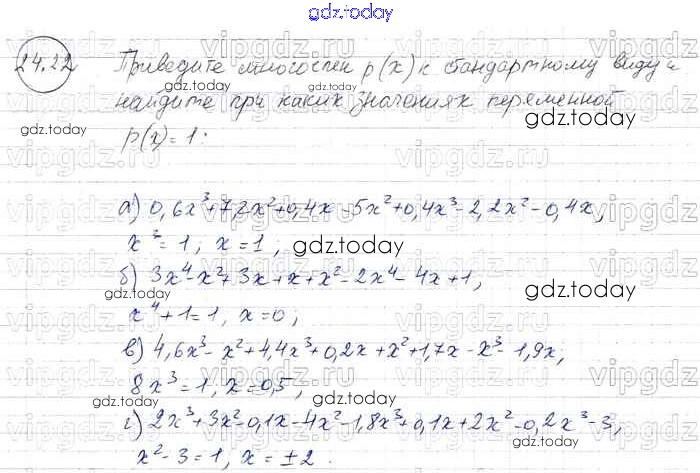 gdz.today
24.22 Приведите многочлен p(x) к стандартному виду и
найдите при каких значениях переменной
gdz.today
gdz.today
p(x)=1:
а) 0,6x³+7,2x²+0,4x-5x²+0,4x³-2,2x²-0,4x,
x³=1, x=1, gdz.today
gdz.today
б) 3x⁴-x²+3x+x+x²-2x⁴-4x+1,
gdz.today
gdz.today
x⁴+1=1, x=0;
в) 4,6x³-x²+4,4x³+0,2x+x²+1,7x-x³-1,9x;
8x³=1, x=0,5,
gdz.today
gdz.today
г) 2x³+3x²-0,1x-4x²-1,8x³+0,1x+2x²-0,2x³-3,
x²-3=1, x=±2. gdz.today
gdz.today